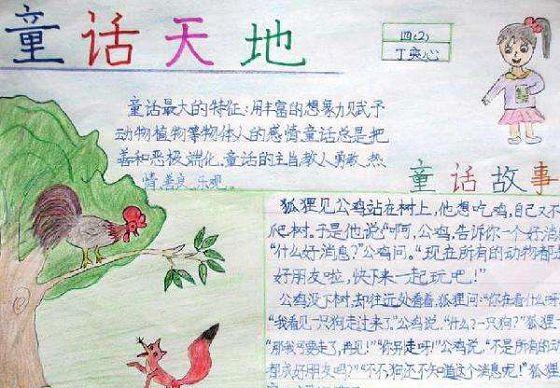 童话天地
四(2)
丁奕心
童话最大的特征:用丰富的想象力赋予
动物植物等物体人的感情童话总是把
善和恶极端化,童话的主角教人勇敢、热
情、善良、乐观
童话故事
狐狸见公鸡站在树上,他想吃鸡,自己又不
爬树。于是他说“啊,公鸡,告诉你一个好消
“什么好消息?”公鸡问。“现在所有的动物都
好朋友啦,快下来一起玩吧!”
公鸡没下树,却往远处看着,狐狸问:“你在看什么呀
“我看见一只狗走过来了。”公鸡说,“什么?一只狗?”狐狸
“那我可要走了,再见!”“你别走呀!”公鸡说,“不是所有的动
都成好朋友吗?”“不,狗还不知道这个消息呢!”狐狸